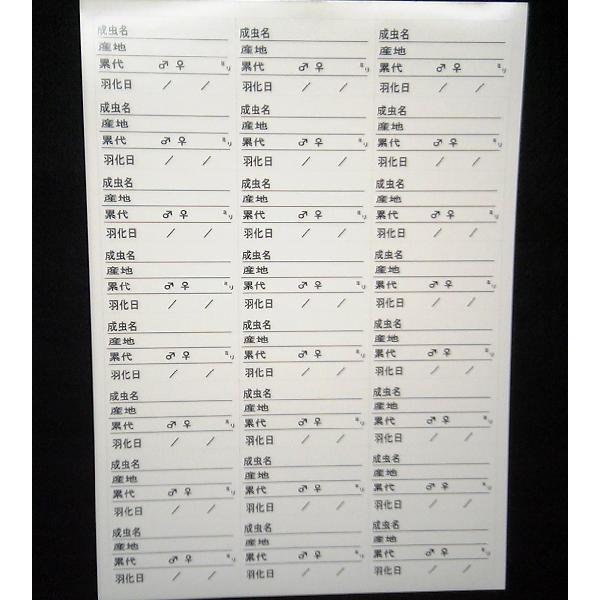 成虫名
産地
累代 ♂ ♀ ミリ
羽化日 / /
成虫名
産地
累代 ♂ ♀ ミリ
羽化日 / /
成虫名
産地
累代 ♂ ♀ ミリ
羽化日 / /
成虫名
産地
累代 ♂ ♀ ミリ
羽化日 / /
成虫名
産地
累代 ♂ ♀ ミリ
羽化日 / /
成虫名
産地
累代 ♂ ♀ ミリ
羽化日 / /
成虫名
産地
累代 ♂ ♀ ミリ
羽化日 / /
成虫名
産地
累代 ♂ ♀ ミリ
羽化日 / /
成虫名
産地
累代 ♂ ♀ ミリ
羽化日 / /
成虫名
産地
累代 ♂ ♀ ミリ
羽化日 / /
成虫名
産地
累代 ♂ ♀ ミリ
羽化日 / /
成虫名
産地
累代 ♂ ♀ ミリ
羽化日 / /
成虫名
産地
累代 ♂ ♀ ミリ
羽化日 / /
成虫名
産地
累代 ♂ ♀ ミリ
羽化日 / /
成虫名
産地
累代 ♂ ♀ ミリ
羽化日 / /
成虫名
産地
累代 ♂ ♀ ミリ
羽化日 / /
成虫名
産地
累代 ♂ ♀ ミリ
羽化日 / /
成虫名
産地
累代 ♂ ♀ ミリ
羽化日 / /
成虫名
産地
累代 ♂ ♀ ミリ
羽化日 / /
成虫名
産地
累代 ♂ ♀ ミリ
羽化日 / /
成虫名
産地
累代 ♂ ♀ ミリ
羽化日 / /
成虫名
産地
累代 ♂ ♀ ミリ
羽化日 / /
成虫名
産地
累代 ♂ ♀ ミリ
羽化日 / /
成虫名
産地
累代 ♂ ♀ ミリ
羽化日 / /